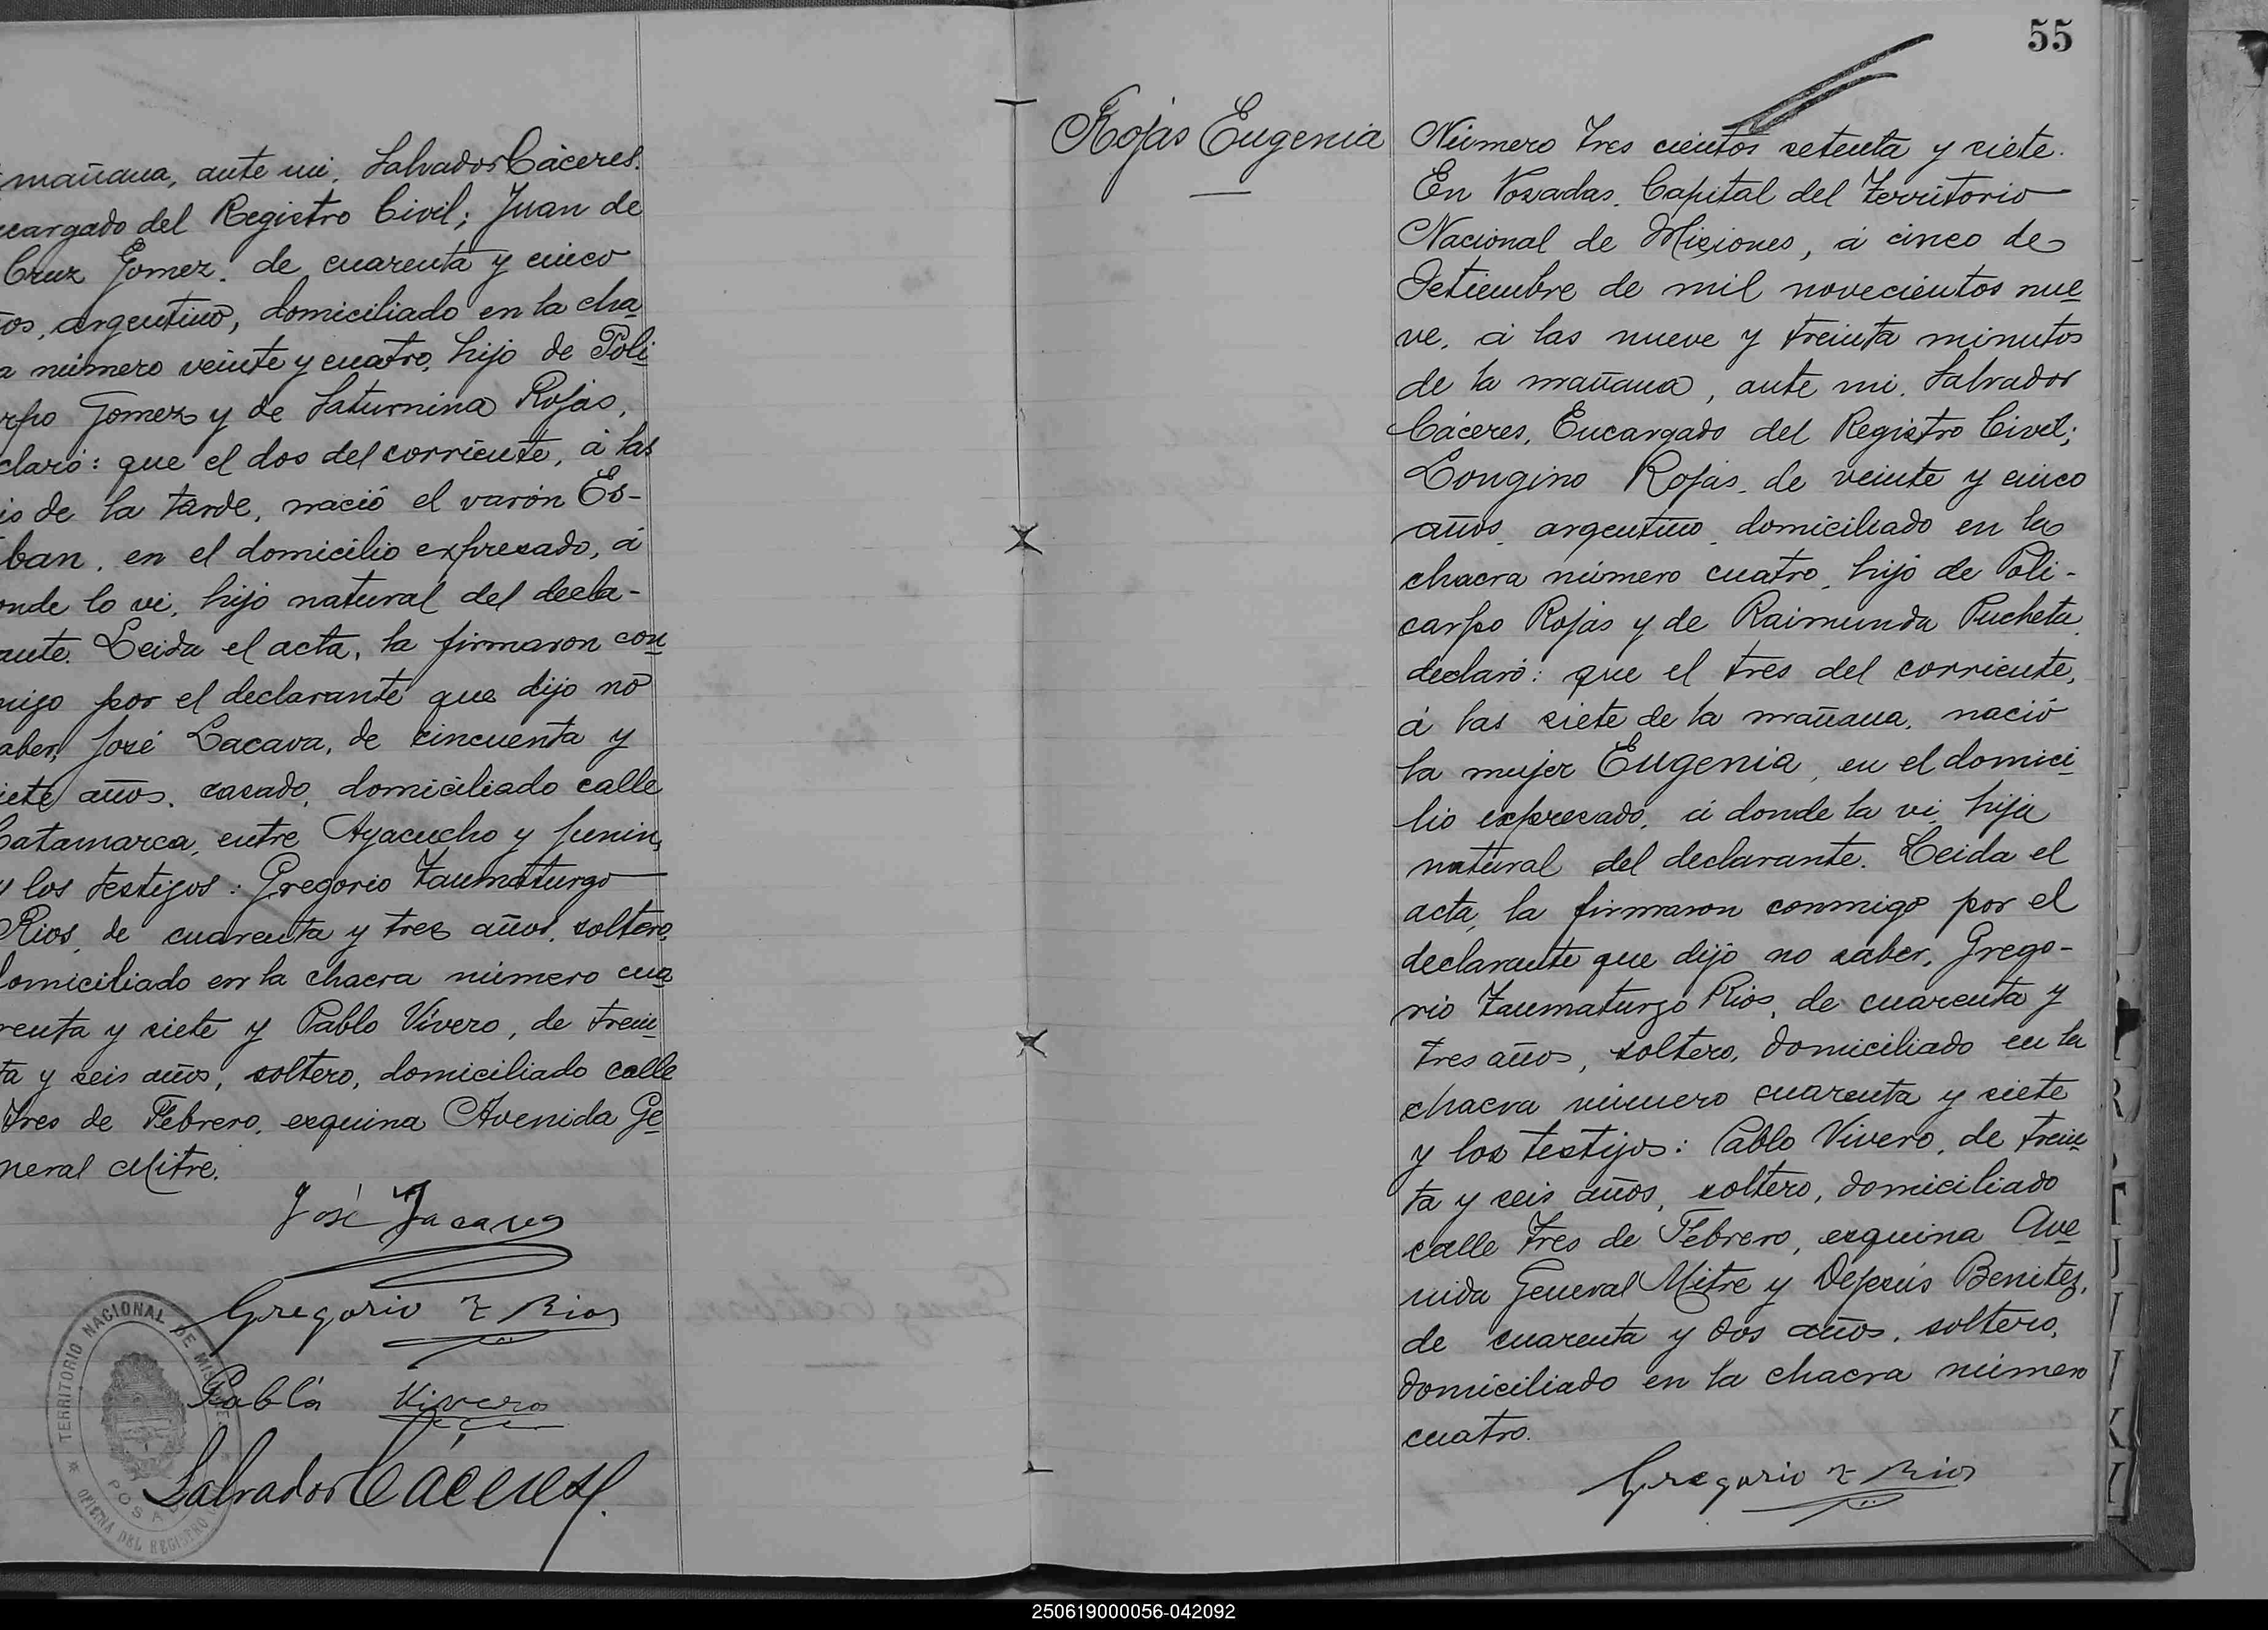 mañana, ante mi, Salvador Cáceres.
cargado del Registro Civil; Juan de
Cruz Gomez, de cuarenta y cinco
os, argentino, domiciliado en la cha
a número veinte y cuatro, hijo de Poli
rpo Gomez y de Saturnina Rojas,
claró: que el dos del corriente, á las
is de la tarde, nació el varón Es-
ban, en el domicilio expresado, á
onde lo vi, hijo natural del decla-
ante. Leida el acta, la firmaron con
migo por el declarante que dijo no
aber, José Lacava, de cincuenta y
iete años, casado, domiciliado calle
Catamarca, entre Ayacucho y Junin,
y los testigos: Gregorio Taumaturgo
Rios, de cuarenta y tres años, soltero,
domiciliado en la chacra número cua
renta y siete y Pablo Vivero, de trein
ta y seis años, soltero, domiciliado calle
Tres de Febrero, esquina Avenida Ge
neral Mitre.
José Lacava
Gregorio T Rios
Pablo Vivero
Salvador Cáceres
TERRITORIO NACIONAL DE MISIONES
POSADAS
OFICINA DEL REGISTRO
55
Rojas Eugenia
Número tres cientos setenta y siete.
En Posadas, Capital del Territorio
Nacional de Misiones, á cinco de
Setiembre de mil novecientos nue
ve, á las nueve y treinta minutos
de la mañana, ante mi, Salvador
Cáceres, Encargado del Registro Civil;
Longino Rojas, de veinte y cinco
años, argentino, domiciliado en la
chacra número cuatro, hijo de Poli-
carpo Rojas y de Raimunda Pucheta,
declaró: que el tres del corriente,
á las siete de la mañana, nació
la mujer Eugenia, en el domici
lio expresado, á donde la vi, hija
natural del declarante. Leida el
acta, la firmaron conmigo por el
declarante que dijo no saber, Grego-
rio Taumaturgo Rios, de cuarenta y
tres años, soltero, domiciliado en la
chacra número cuarenta y siete
y los testigos: Pablo Vivero, de trein
ta y seis años, soltero, domiciliado
calle Tres de Febrero, esquina Ave
nida General Mitre y Dejesús Benitez,
de cuarenta y dos años, soltero,
domiciliado en la chacra número
cuatro.
Gregorio T Rios
250619000056-042092